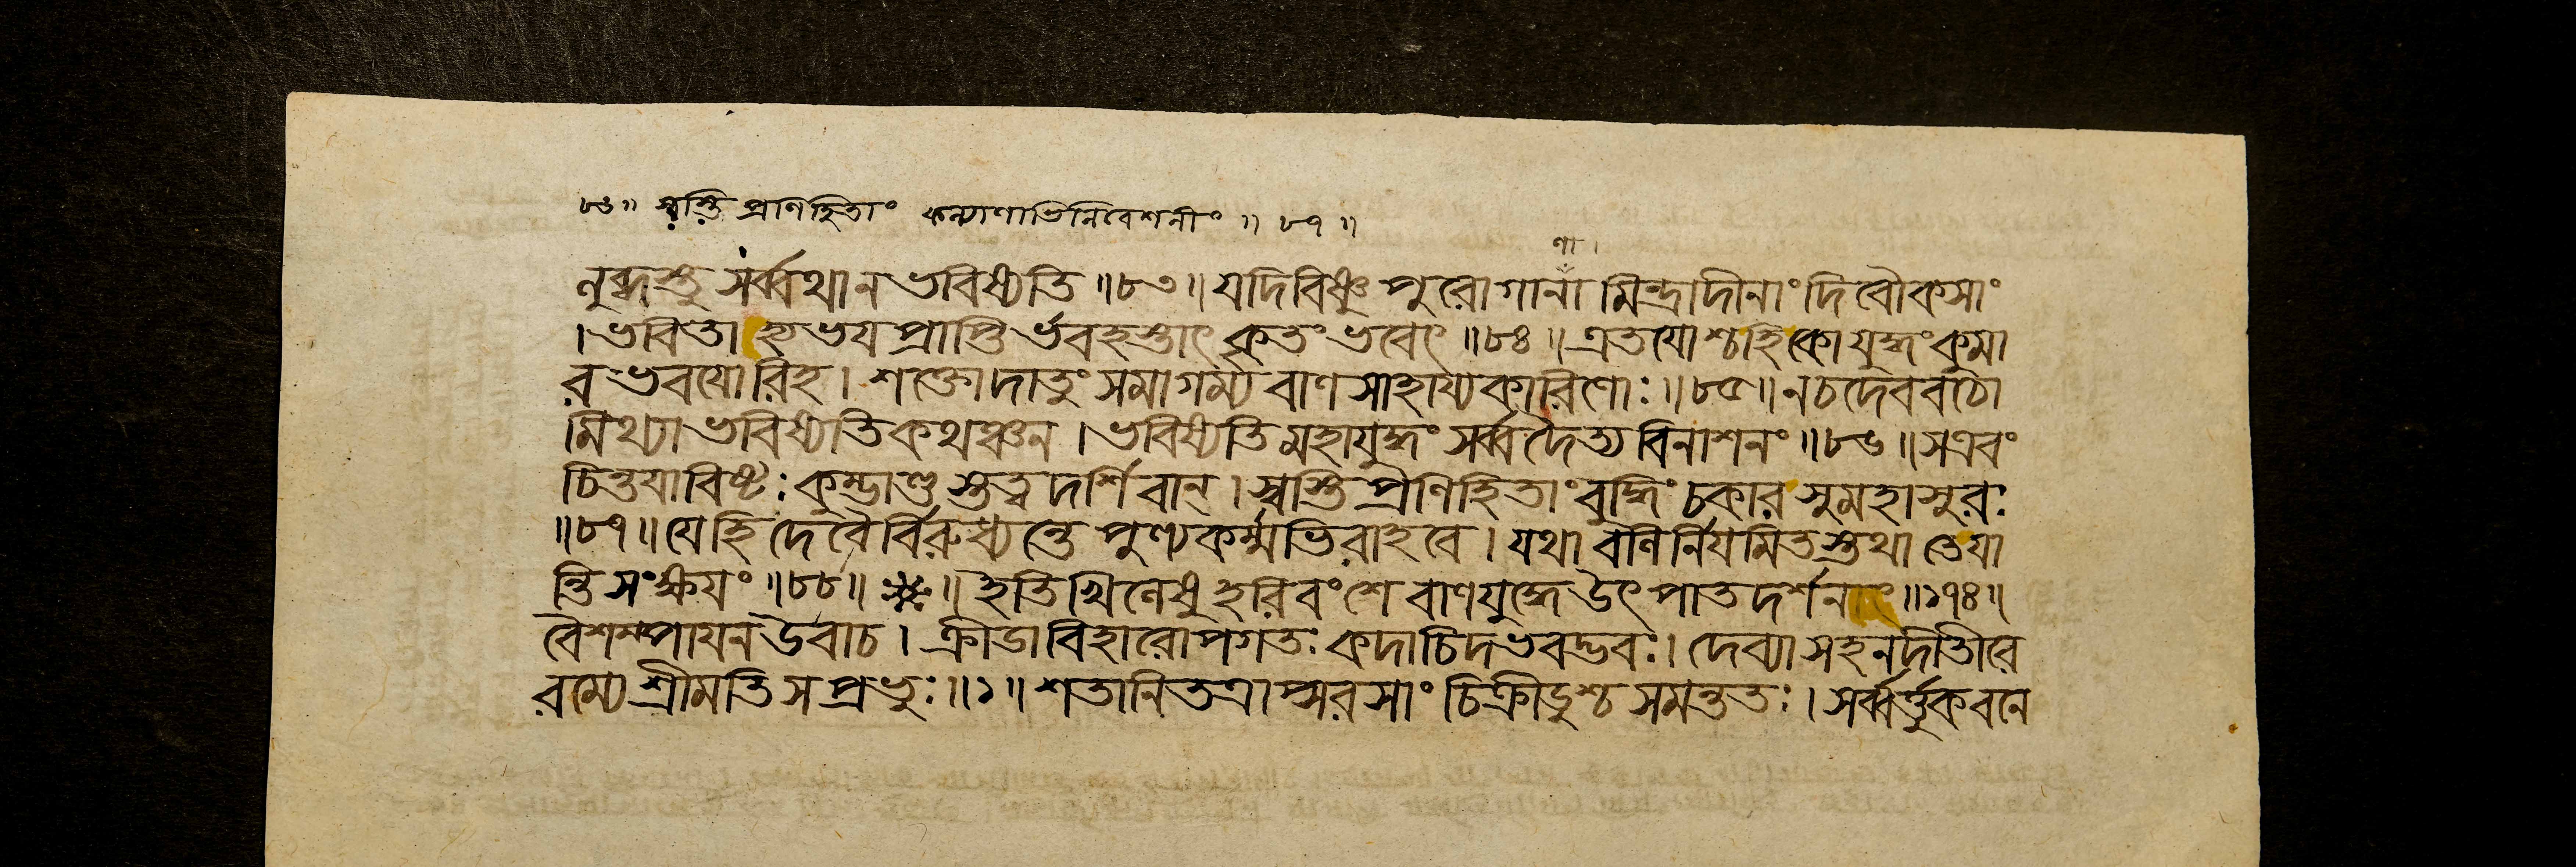 ৮৬॥ স্বস্তি প্রাণিহিতাং কল্যাণাভিনিবেশনীং ॥ ৮৭ ॥
ণা।
নুব্দস্তু সর্ব্বথা ন ভবিষ্যতি ॥৮৩॥ যদি বিষ্ণু পুরোগানা মিন্দ্রাদীনাং দিবৌকসাং
। ভবিতা হ্যভয প্রাপ্তি র্ভবহস্তাৎ কৃতং ভবেৎ ॥৮৪॥ এতযোশ্চ হি কো যুদ্ধং কুমা
র ভবযোরিহ। শক্তো দাতুং সমাগম্য বাণ সাহায্য কারিণোঃ ॥৮৫॥ ন চ দেব বচো
মিথ্যা ভবিষ্যতি কথঞ্চন। ভবিষ্যতি মহাযুদ্ধং সর্ব্ব দৈত্য বিনাশনং ॥৮৬॥ স এবং
চিন্তযাবিষ্টঃ কুম্ভাণ্ড স্তত্ব দর্শিবান্। স্বস্তি প্রণিহিতাং বুদ্ধিং চকার সুমহাসুরঃ
॥৮৭॥ যে হি দেবৈ র্বিরুধ্যন্তে পুণ্যকর্ম্মভিরাহবে। যথা বলি র্নিযমিত স্তথা তে যা
ন্তি সংক্ষযং ॥৮৮॥ ※ ॥ ইতি খিলেষু হরিবংশে বাণযুদ্ধে উৎপাত দর্শনাং ॥১৭৪॥
বৈশম্পাযন উবাচ। ক্রীডা বিহারোপগতঃ কদাচিদভবদ্ভবঃ। দেব্যা সহ নদীতীরে
রম্যে শ্রীমতি স প্রভুঃ ॥১॥ শতানি তত্রাপ্সরসাং চিক্রীডুশ্চ সমন্ততঃ। সর্ব্বর্ত্তুক বনে